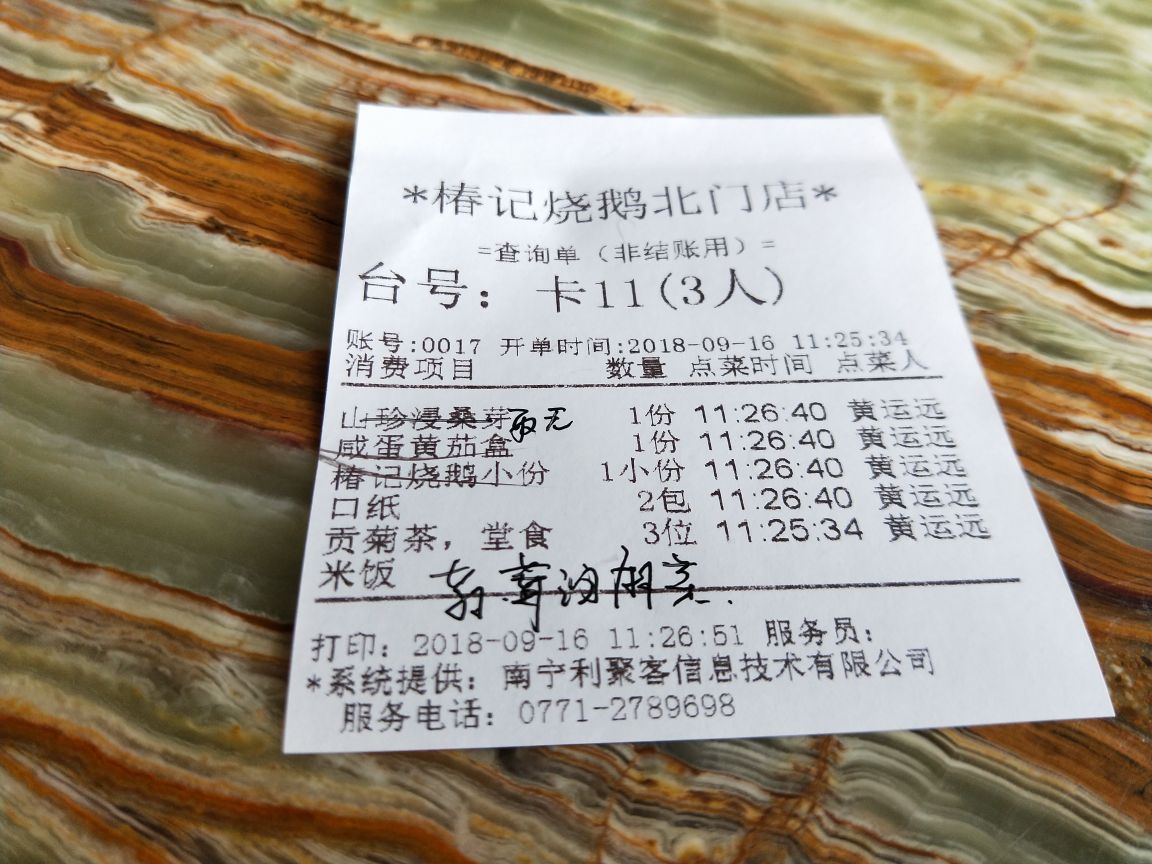 *椿记烧鹅北门店*
=查询单（非结账用）=
台号：卡11(3人)
账号:0017 开单时间:2018-09-16 11:25:34
消费项目 数量 点菜时间 点菜人
山珍浸桑芽 1份 11:26:40 黄运远
咸蛋黄茄盒 1份 11:26:40 黄运远
椿记烧鹅小份 1小份 11:26:40 黄运远
口纸 2包 11:26:40 黄运远
贡菊茶，堂食 3位 11:25:34 黄运远
米饭
打印：2018-09-16 11:26:51 服务员：
*系统提供：南宁利聚客信息技术有限公司
服务电话：0771-2789698